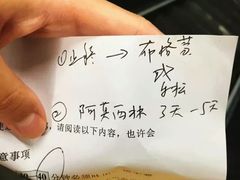 ①止疼 → 布格芬
或
午松
② 阿莫西林 3天-5天
,请阅读以下内容,也许会
意事项